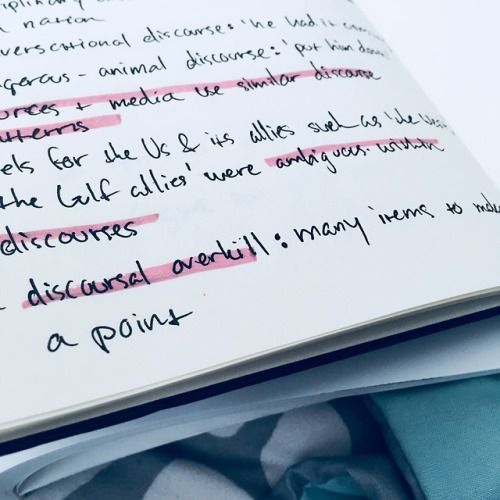 nation
discourse: 'he had it
- animal discourse: 'put him down'
+ media use similar discourse
for the US & its allies such as 'the
the Gulf allies' were ambiguous within
discourses
discoursal overkill: many items to make
a point